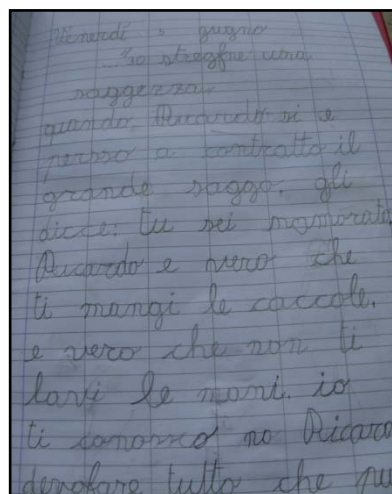 Venerdì 5 giugno
...Io stregfne una
saggezza
quando Riccardo si e
persso a contratto il
grande saggo. gli
dicce: tu sei inamorato
Riccardo e vero che
ti mangi le caccole.
e vero che non ti
lavi le mani. io
ti conosco no Ricardo
devofare tutto che